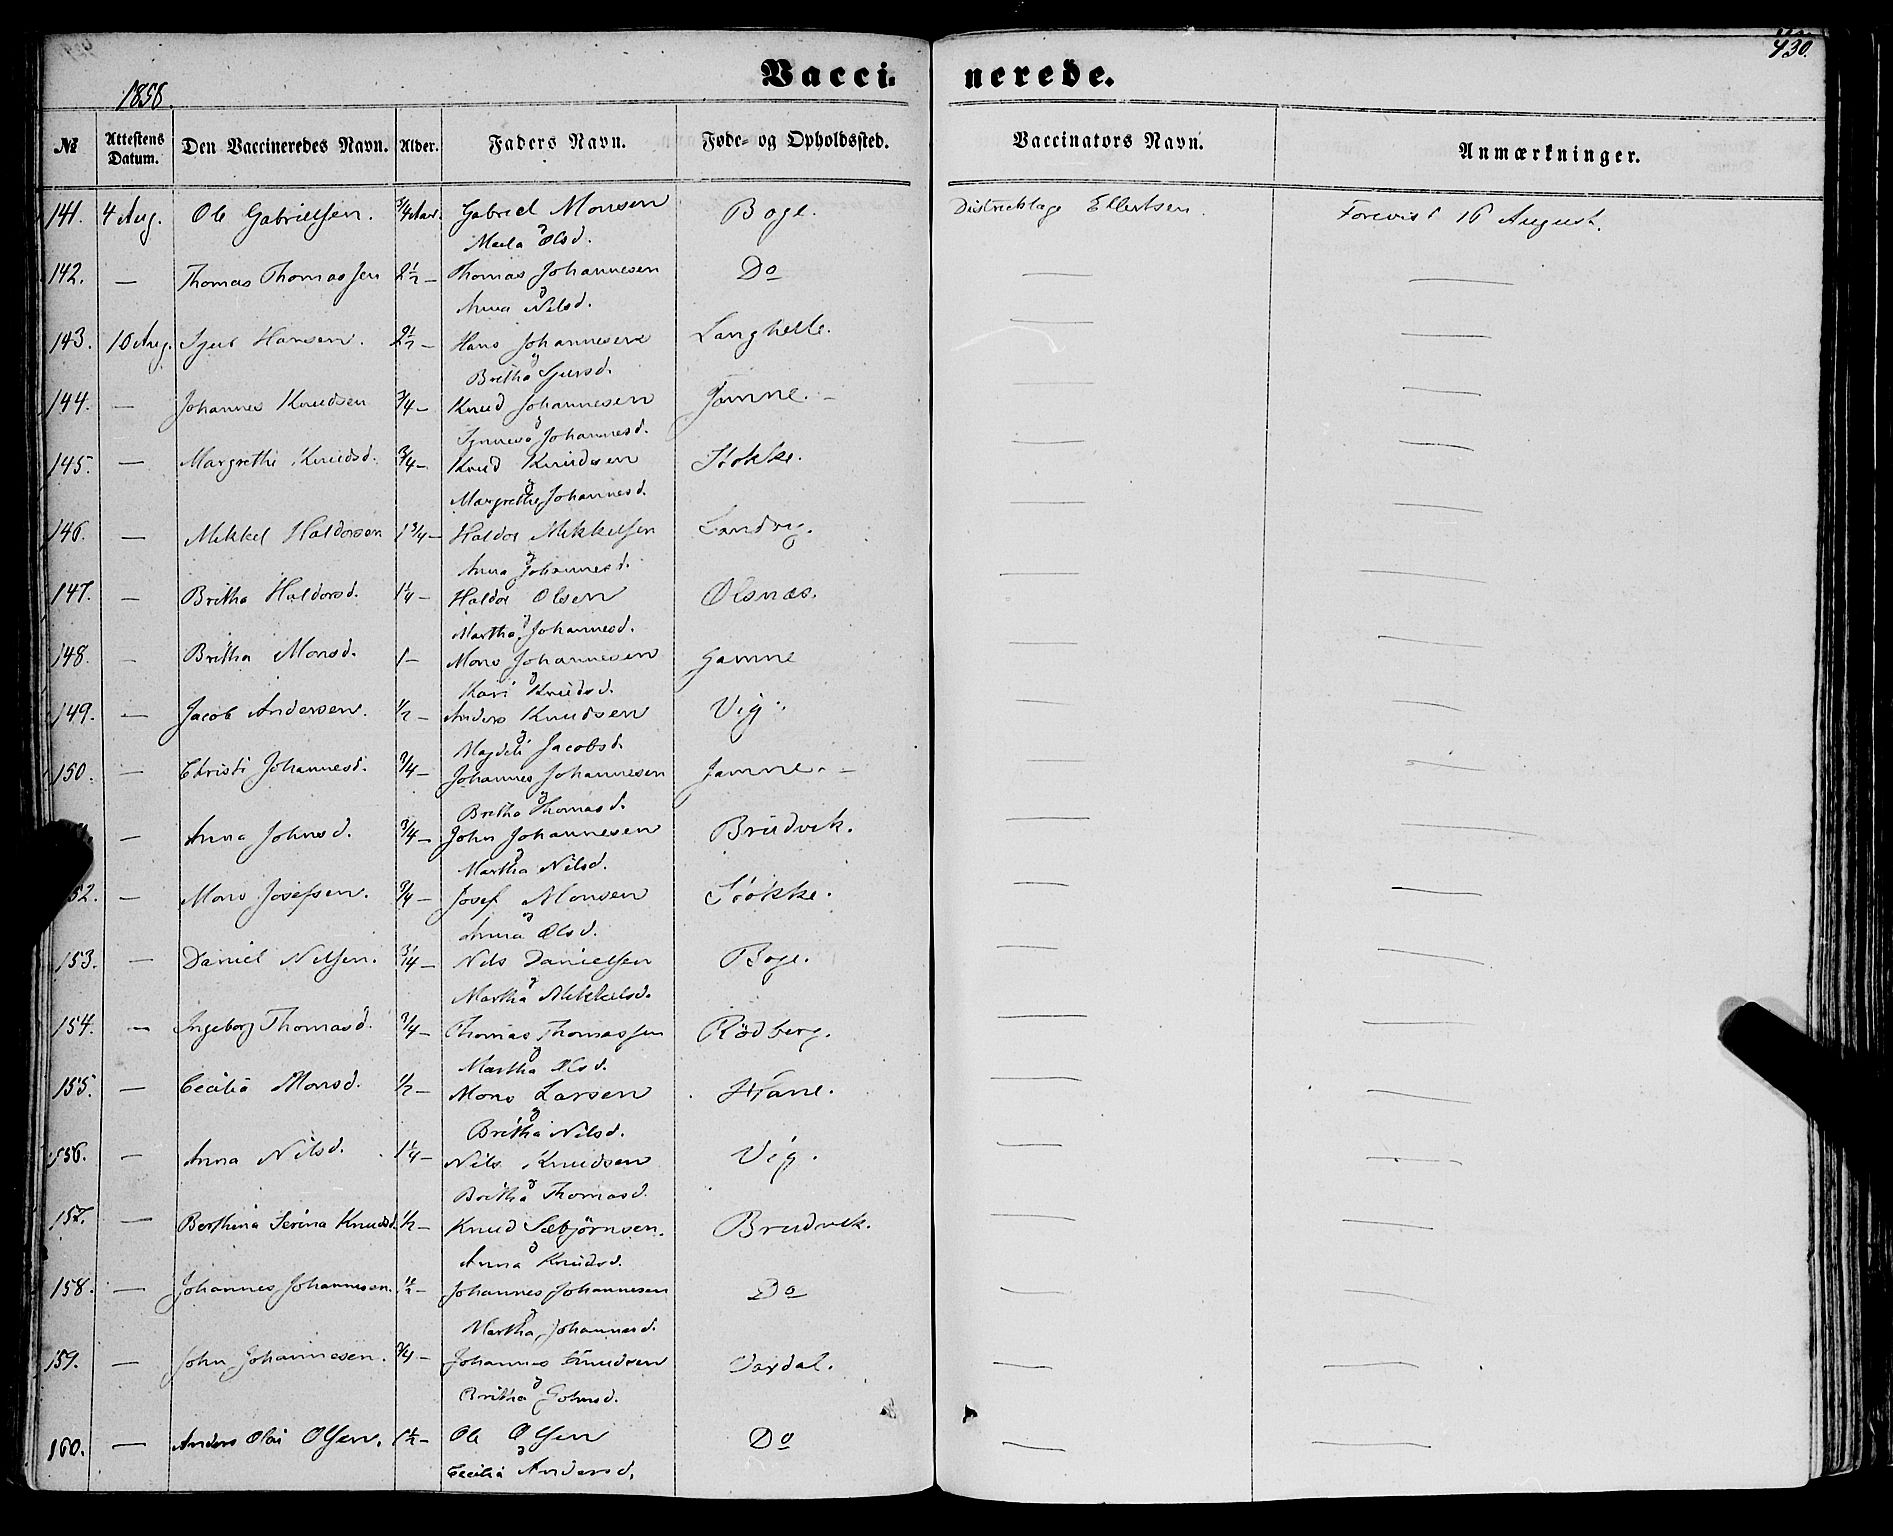 430.
Vacci- nerede.
1858.
№ Attestens Datum. Den Vaccineredes Navn. Alder. Faders Navn. Føde- og Opholdssted. Vaccinators Navn. Anmærkninger.
141. 4 Aug. Ole Gabrielsen. 3/4 Aar. Gabriel Monsen Boge. Districtslæge Ellertsen. Forevist 16 August.
Olsd.
142. — Thomas Thomassen 2½ — Thomas Johannesen Do — —
Anna Nilsd.
143. 10 Aug. Sjur Hansen. — Hans Johannesen Langhelle. — —
Britha Sjursd.
144. — Johannes Knudsen 3/4 — Knud Johannesen Jamne. — —
Synneva Johannesd.
145. — Margrethe Knudsd. 3/4 — Knud Knudsen Stokke. — —
Margrethe Johannesd.
146. — Mikkel Haldorsen 1 3/4 — Haldor Mikkelsen Landvig. — —
Anna Johannesd.
147. — Britha Haldorsd. 1¼ — Haldor Olsen Olsnæs. — —
Martha Johannesd.
148. — Britha Monsd. 1 — Mons Johannesen Jamne — —
Kari Knudsd.
149. — Jacob Andersen. ½ — Anders Knudsen Vig — —
Magdeli Jacobsd.
150. — Christi Johannesd. 3/4 — Johannes Johannesen Jamne. — —
Britha Thomasd.
— Anna Johnsd. 3/4 — John Johannesen Brudvik. — —
Martha Nilsd.
52. — Mons Josefsen. 3/4 — Josef Monsen Stokke. — —
Anna Olsd.
153. — Daniel Nilsen. 3/4 — Nils Danielsen Boge. — —
Martha Mikkelsd.
154. — Ingeborg Thomasd. 3/4 — Thomas Thomassen Rödberg. — —
Martha Olsd.
155. — Cecilia Monsd. ½ — Mons Larsen — —
Britha Nilsd.
156. — Anna Nilsd. 1¼ — Nils Knudsen Vig. — —
Britha Thomasd.
157. — Berthina Serina Knudsd. ½ — Knud Sæbjörnsen. Brudvik. — —
Anna Knudsd.
158. — Johannes Johannesen. ½ — Johannes Johannesen Do — —
Martha Johannesd.
159. — John Johannesen. 3/4 — Johannes Knudsen Vaxdal. — —
Britha Johnsd.
160. — Anders Olai Olsen. 1½ — Ole Olsen Do — —
Cecilia Andersd.